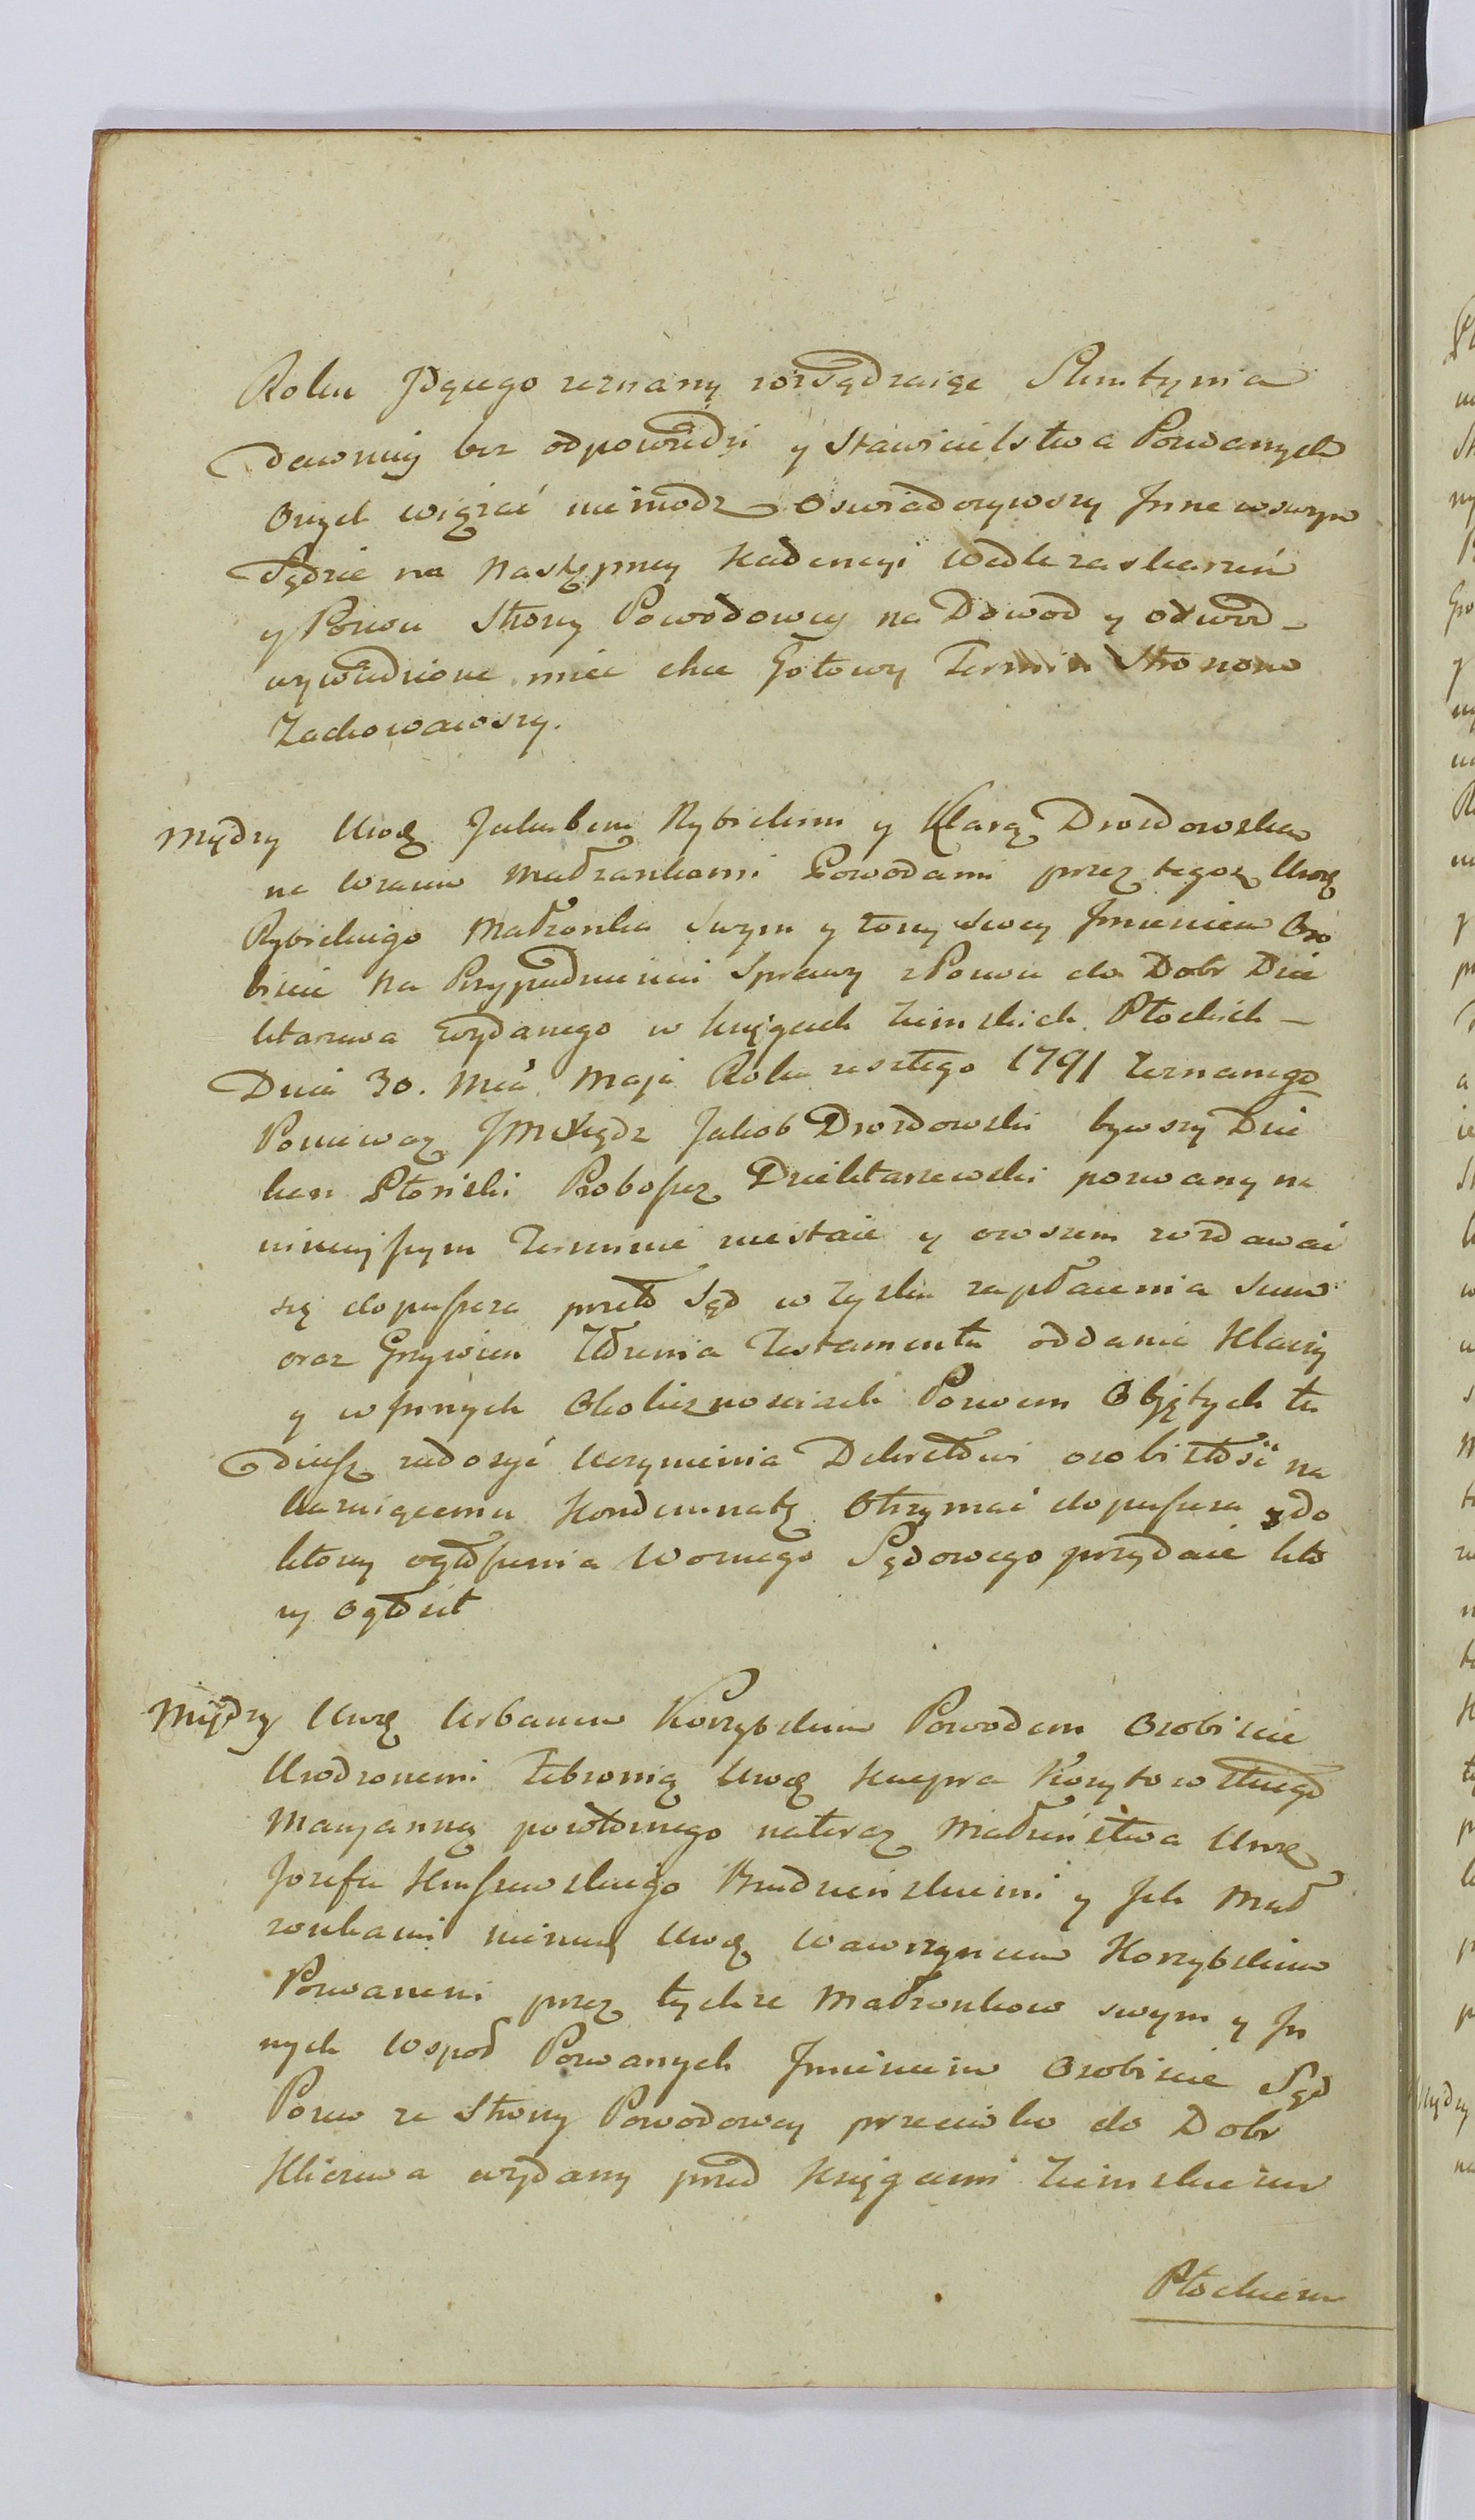 Roku Jdącego zeznany rozsądzaiąc Skrutynia
dawniej bez odpowiedzi y Stawicielstwa Pozwanych
Onych wiązać niemodz Oswiadczywszy Inne wswym
Sądzie na Następney Kadencyi wedle zaskarżeń
y Pozwu Strony Powodowey na Dowod y odwod –
wywiedzione mieć chce Gotowy Termin Stronom
Zachowawszy.
Między Uroż Jakubem Rybickim y Klarą Drozdowską
Małżonkami Powodami przez tegoż Uroż
Rybickiego Małżonka Swym y żony Swey Imieniem Oso
biscie Na Przypadnieniu Sprawy z Pozwu do Dobr Dzie
ktarzewa wydanego w księgach Ziemskich Płockich –
Dnia 30. Mca Maja Roku zeszłego 1791 Zeznanego
Ponieważ JmXiądz Jakob Drozdowski bywszy Dzie
kan Płoński Proboszcz Dziektarzewski pozwany na
ninieyszym Terminie niestaie y owszem wzdawać
się dopuszcza przeto Sąd w Zysku zapłacenia Summ
oraz Grzywien Złożenia Testamentu oddania Klaczy
y wInnych Okolicznosciach Pozwem Objętych tu
dzież zadosyć Uczynienia Dekretowi osobistość na
kazuiącemu Kondemnatę Otrzymać dopuszcza y do
ktorey ogłoszenia Woznego Sądowego przydaie kto
ry Ogłosił
Między Uroż Urbanem Korzybskim Powodem Osobiscie
Urodzonemi Febronią Uroż Kacpra Korytowskiego
Maryanną powtornego nateraz Małżeństwa Uroż
Jozefa Kruszewskiego Brudzeńskiemi y Ich Mał
żonkami niemniey Uroż Wawrzyncem Korzybskim
Pozwanemi przez tychże Małżonkow swym y In
nych Wspoł Pozwanych Imieniem Osobiscie Sąd
Pozew ze Strony Powodowey przeciwko do Dobr
wydany przed Księgami Ziemskiemi
Płockiemi